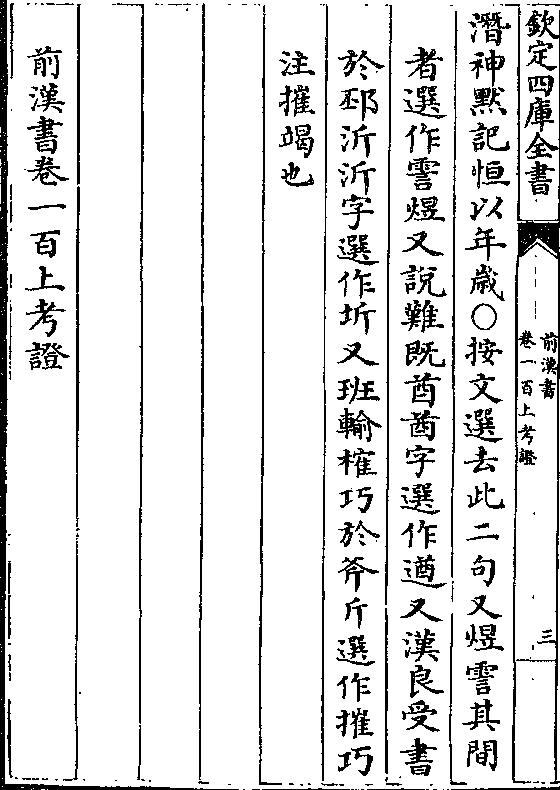 欽定四庫全書
前漢書
卷一百上考證
三
潛神默記恒以年歲○按文選去此二句又煜霅其間
者選作霅煜又說難既酋酋字選作遒又漢良受書
於邳沂沂字選作圻又班輸榷巧於斧斤選作摧巧
注摧竭也
前漢書卷一百上考證